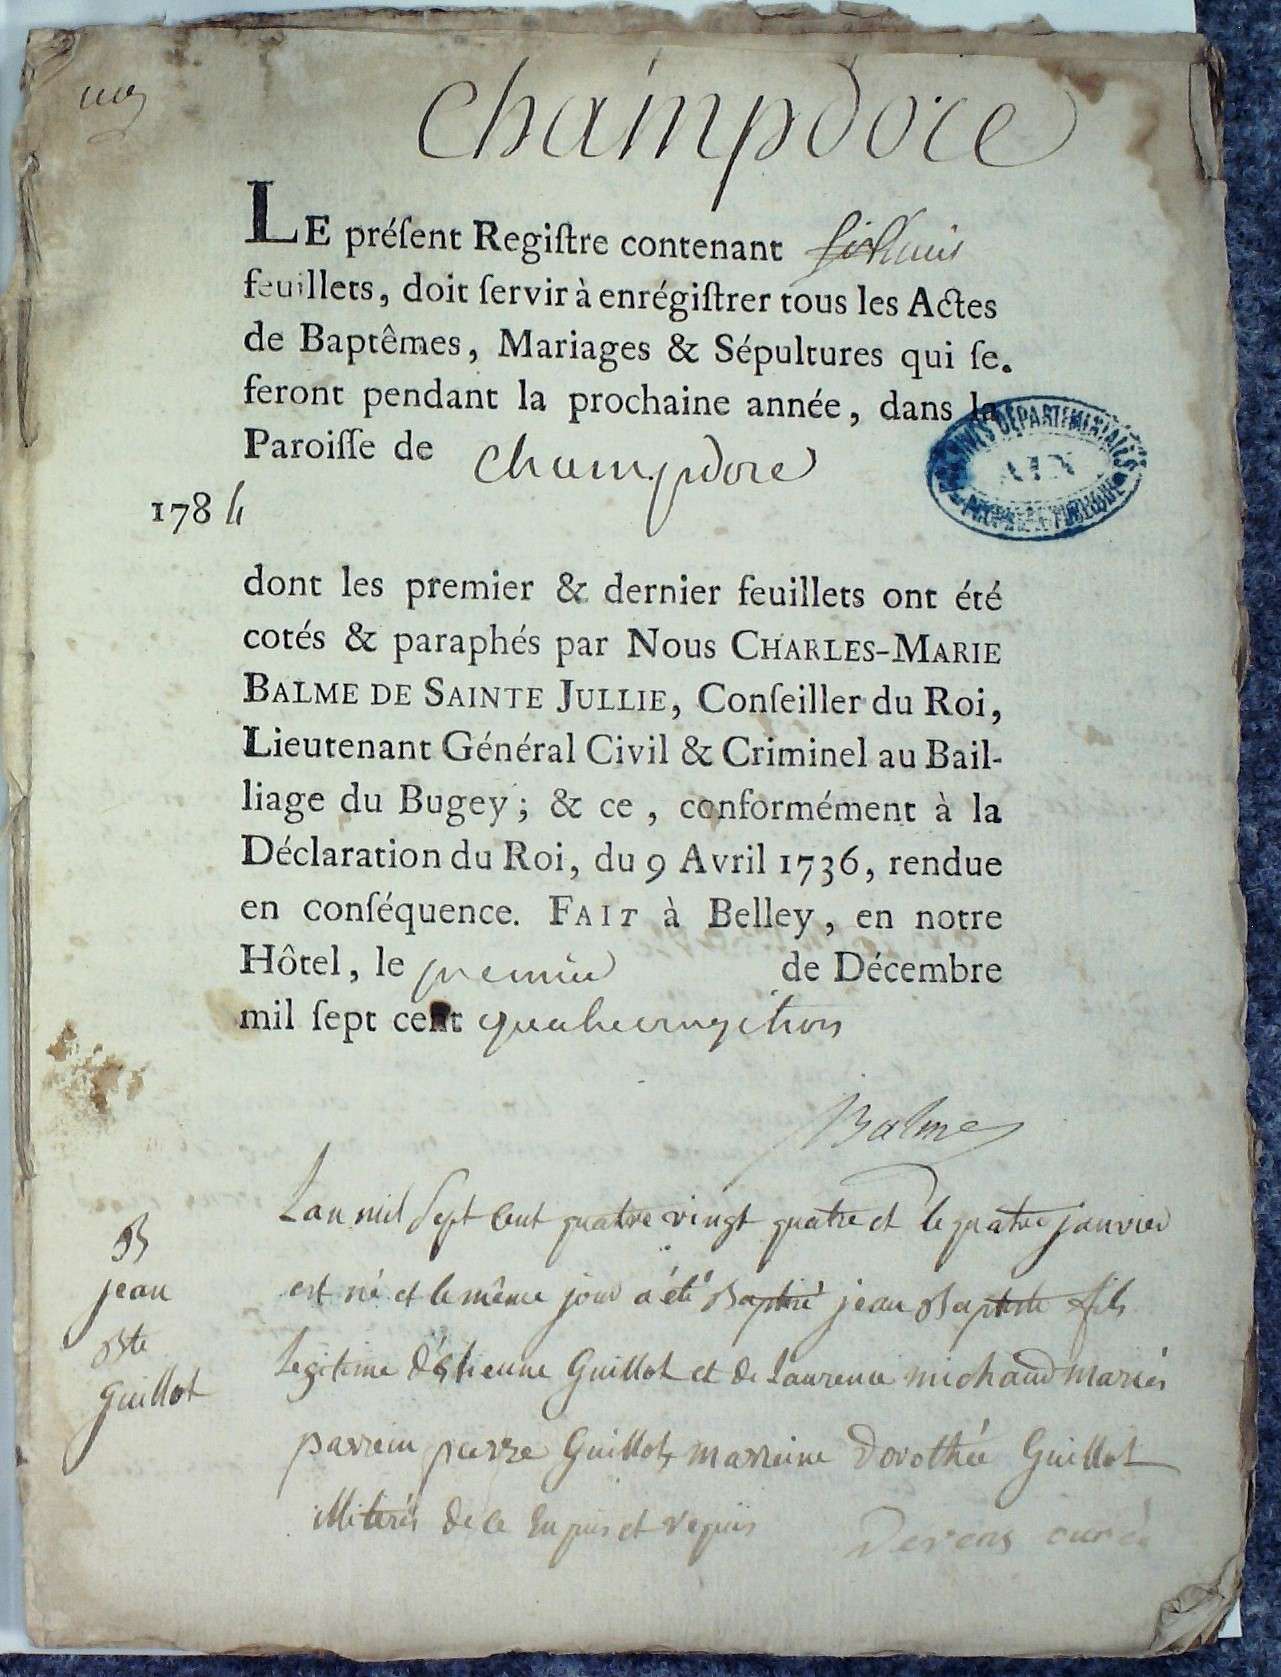 champdore
LE préſent Regiſtre contenant
feuillets, doit ſervir à enrégiſtrer tous les Actes
de Baptêmes, Mariages & Sépultures qui ſe
feront pendant la prochaine année, dans la
Paroiſſe de champdore
ARCHIVES DÉPARTEMENTALES
AIN
1784
dont les premier & dernier feuillets ont été
cotés & paraphés par Nous CHARLES-MARIE
BALME DE SAINTE JULLIE, Conſeiller du Roi,
Lieutenant Général Civil & Criminel au Bail-
liage du Bugey ; & ce , conformément à la
Déclaration du Roi, du 9 Avril 1736, rendue
en conſéquence. FAIT à Belley, en notre
Hôtel, le premier de Décembre
mil ſept cent quatrevingttrois
Balme
B
jean
Bte
Guillot
Lan mil sept cent quatre vingt quatre et le quatre janvier
est né et le même jour a été Baptisé jean Baptiste fils
Legitime d'Estienne Guillot et de Laurence michaud mariés
parrein pierre Guillot marreine Dorothée Guillot
illiterés de ce Enquis et requis
curé